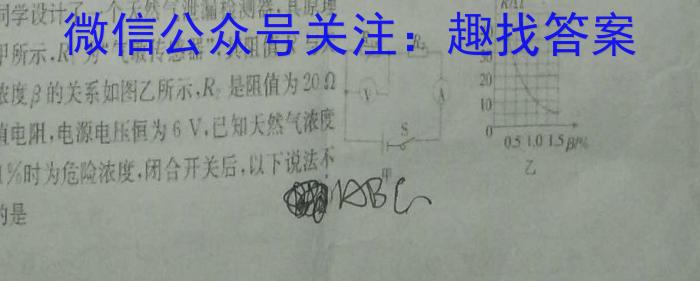 同学设计了一个天然气泄漏检测器,其原理
微信公众号关注：趣找答案
甲所示,R
浓度β的关系如图乙所示,R₂是阻值为20Ω
值电阻,电源电压恒为6 V,已知天然气浓度
1%时为危险浓度,闭合开关后,以下说法不
的是
R₂
V
A
S
甲
30
20
10
0
0.5 1.0 1.5 β/%
乙
ABC